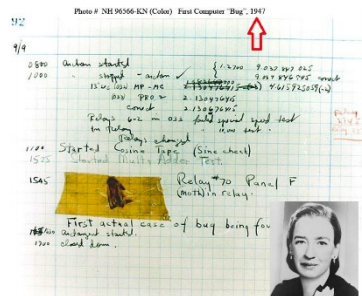 Photo # NH 96566-KN (Color) First Computer "Bug", 1947
92
9/9
0800 Antan started
1000 " stopped - antan ✓ { 1.2700 9.037 847 025
9.037 846 995 correct
13"uc (032) MP - MC 4.615925059(-2)
(033) PRO 2 2.130476415
correct 2.130676415
Relays 6-2 in 033 failed special speed test
in relay " 10.000 test.
Relays changed
1100 Started Cosine Tape (Sine check)
1525 Started Multi Adder Test.
1545 Relay #70 Panel F
(moth) in relay.
First actual case of bug being fou
antangent started.
1700 closed down.